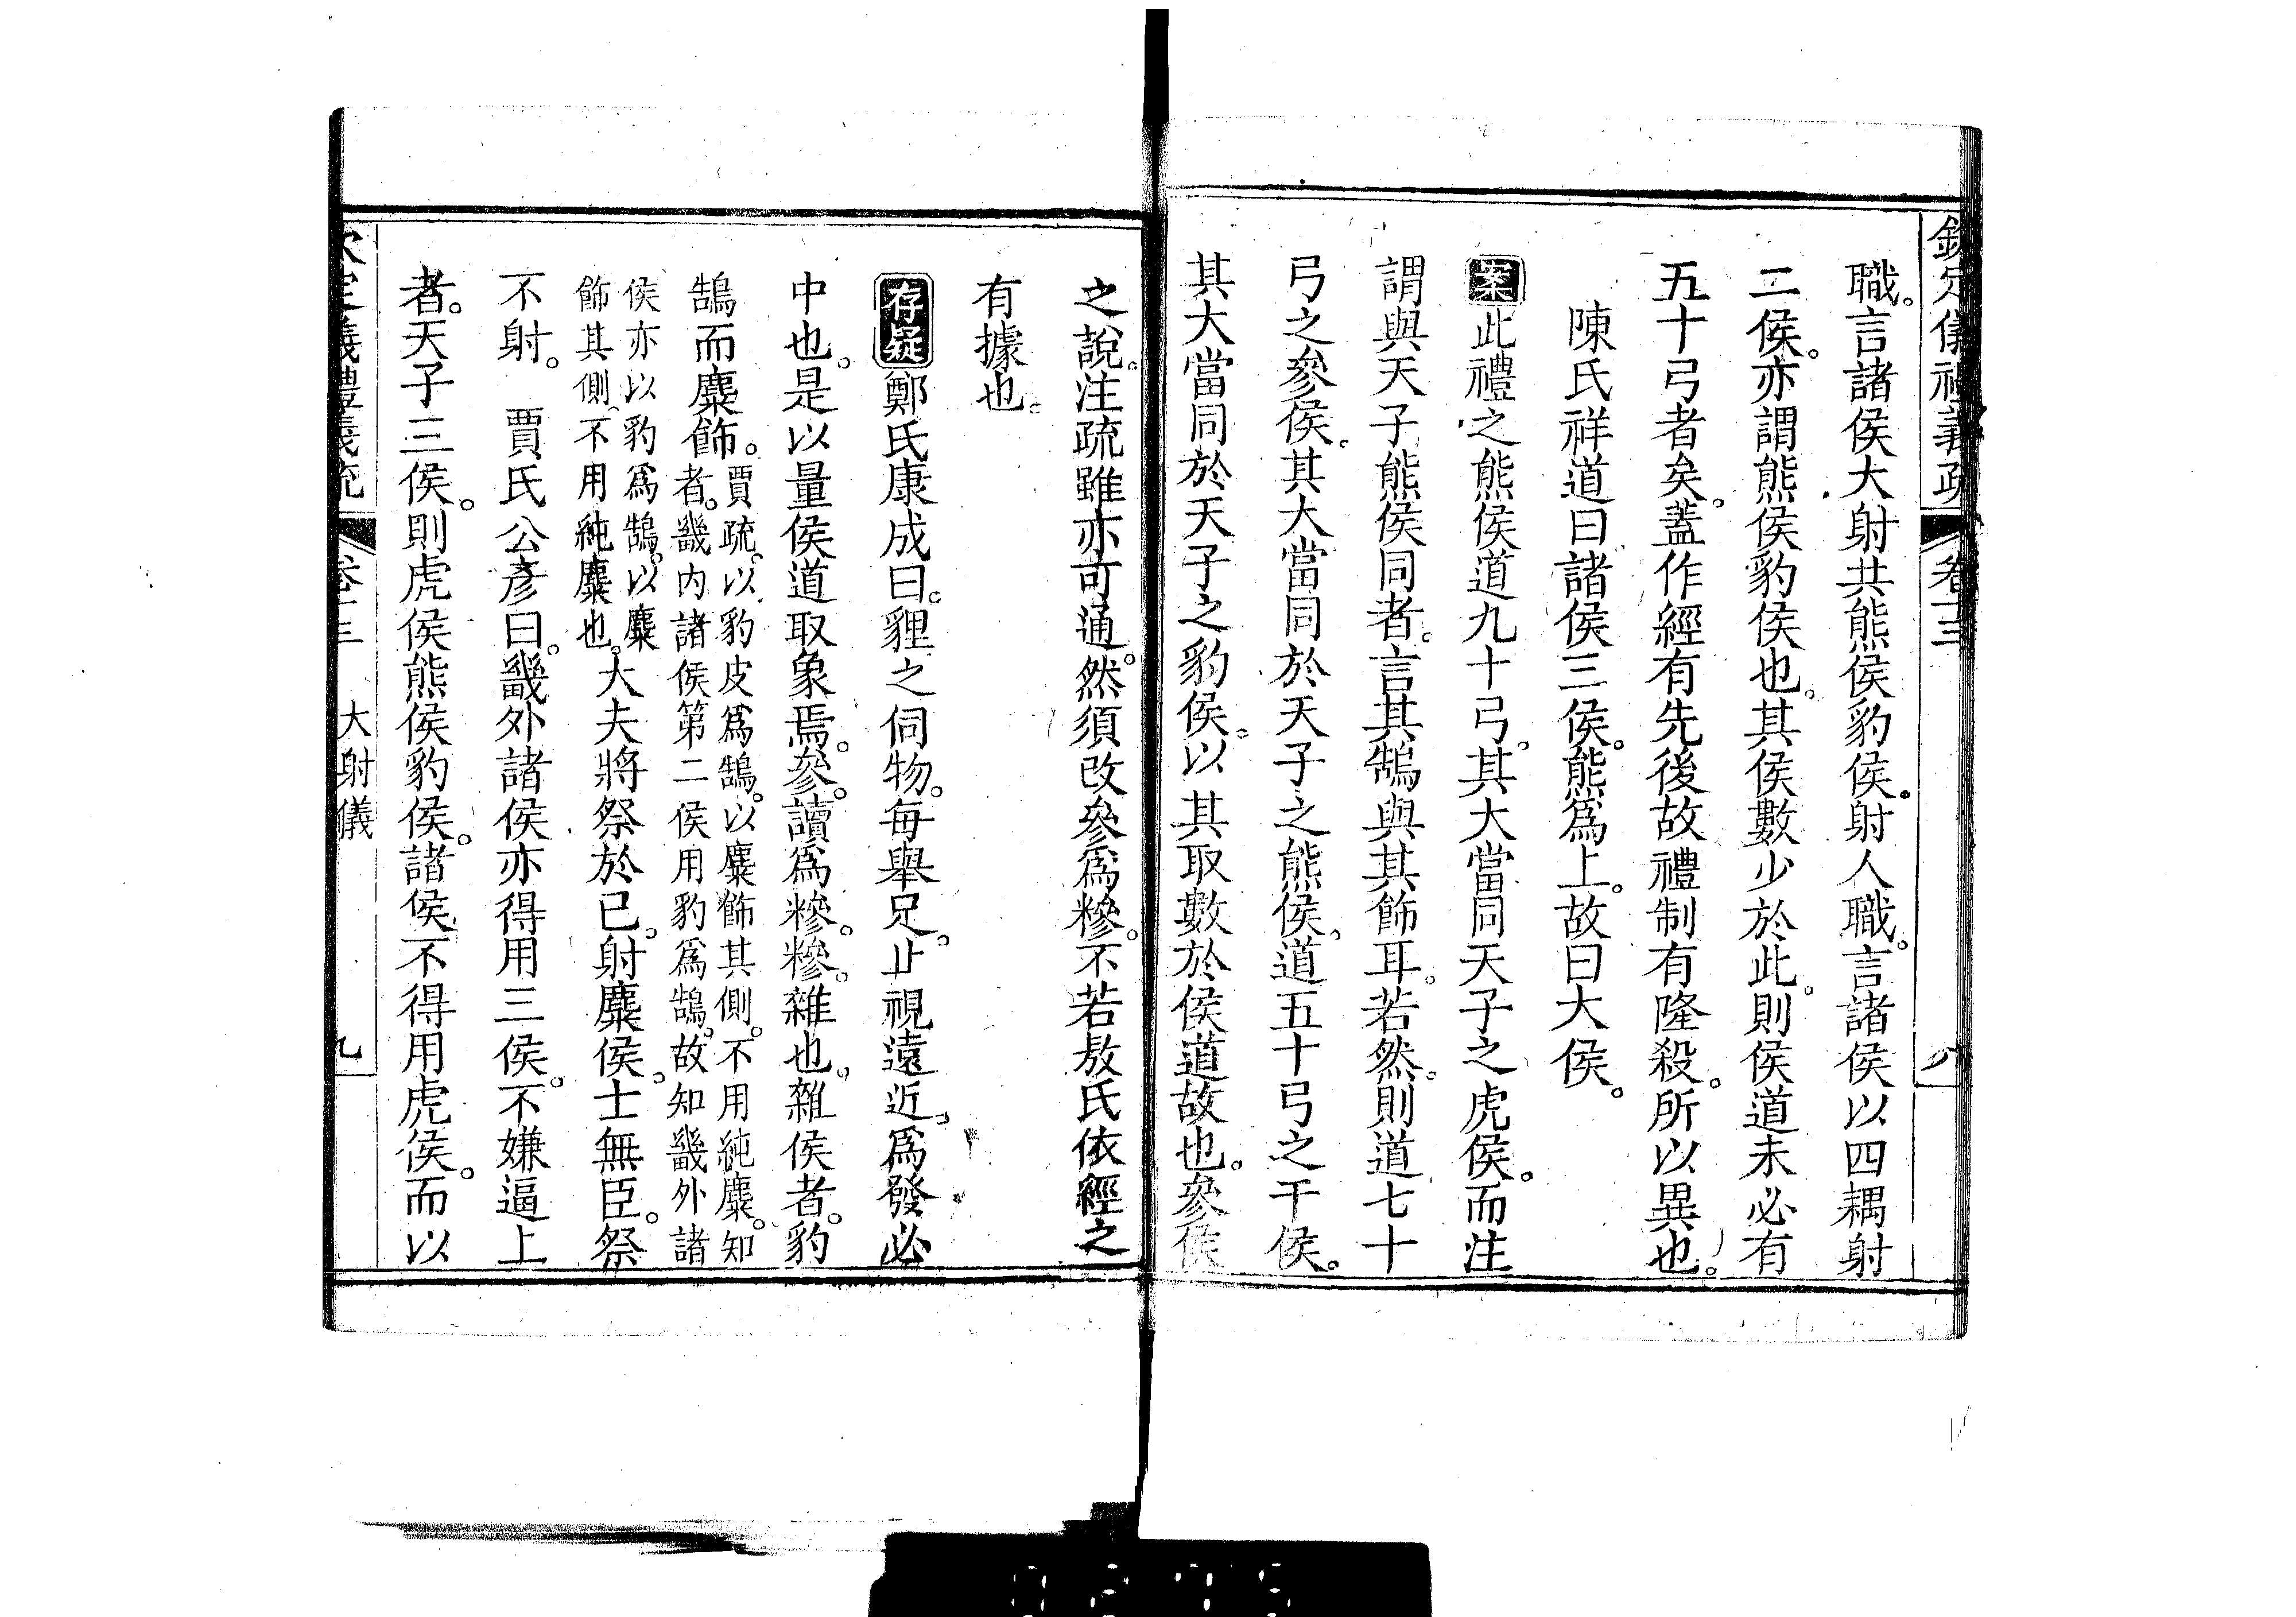 欽定儀禮義疏 卷十三 八
職。言諸侯大射共熊侯豹侯。射人職。言諸侯以四耦射
二侯。亦謂熊侯豹侯也。其侯數少於此。則侯道未必有
五十弓者矣。蓋作經有先後故禮制有隆殺。所以異也。
陳氏祥道曰諸侯三侯。熊爲上。故曰大侯。
案此禮之熊侯道九十弓。其大當同天子之虎侯。而注
謂與天子熊侯同者。言其鵠與其飾耳。若然。則道七十
弓之參侯。其大當同於天子之熊侯。道五十弓之干侯。
其大當同於天子之豹侯。以其取數於侯道故也。參侯
之說。注疏雖亦可通。然須改參爲糝。不若敖氏依經之
有據也。
存疑鄭氏康成曰。貍之伺物。每舉足。止視遠近。爲發必
中也。是以量侯道取象焉。參。讀爲糝。糝。雜也。雜侯者。豹
鵠而麋飾。賈疏。以豹皮爲鵠。以麋飾其側。不用純麋。知
者。畿內諸侯第二侯用豹爲鵠。故知畿外諸
侯亦以豹爲鵠。以麋
飾其側。不用純麋也。大夫將祭於已。射麋侯。士無臣。祭
不射。 賈氏公彥曰。畿外諸侯亦得用三侯。不嫌逼上
者。天子三侯。則虎侯熊侯豹侯。諸侯不得用虎侯。而以
儀禮義疏 卷十三 大射儀 九